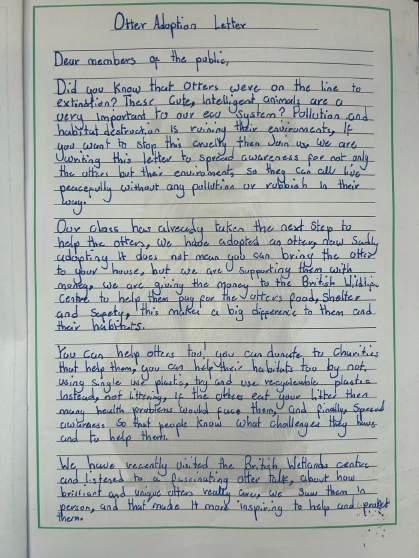 Otter Adoption Letter
Dear members of the public,
Did you know that otters were on the line to
extinction? These cute, intelligent animals are a
very important to our eco system? Pollution and
habitat destruction is ruining their enviroments, If
you want to stop this cruelty then Join us. We are
writing this letter to spread awareness for not only
the otters but their enviroment, so they can all live
peacefully without any pollution or rubbish in their
way.
Our class has already taken the next step to
help the otters, We have adopted an otter, now sadly
adopting it does not mean you can bring the otter
to your house, but we are supporting them with
money, we are giving the money to the British Wildlife
Centre to help them pay for the otters food, shelter
and safety, this makes a big difference to them and
their habitats.
You can help otters too! you can donate to charities
that help them, you can help their habitats too by not
using single use plastic, try and use recycleable plastic
instead, not littering, if the otters eat your litter then
many health problems would face them, and finally, spread
awareness so that people know what challenges they have
and to help them.
We have recently visited the British Wetlands centre
and listened to a fascinating otter talk, about how
brilliant and unique otters really are, we saw them in
person, and that made it more inspiring to help and protect
them.